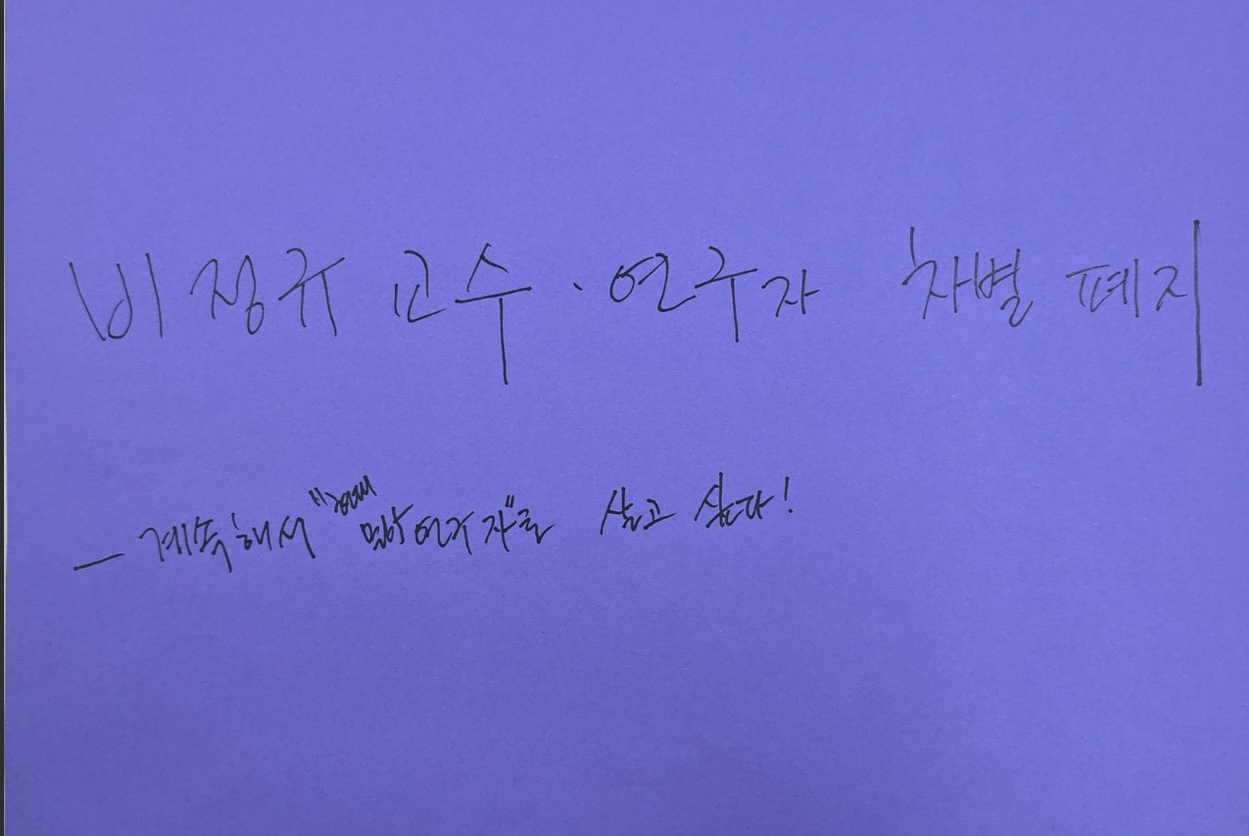 비정규 교수·연구자 차별 폐지
— 계속해서 " 연구자"로 살고 싶다!